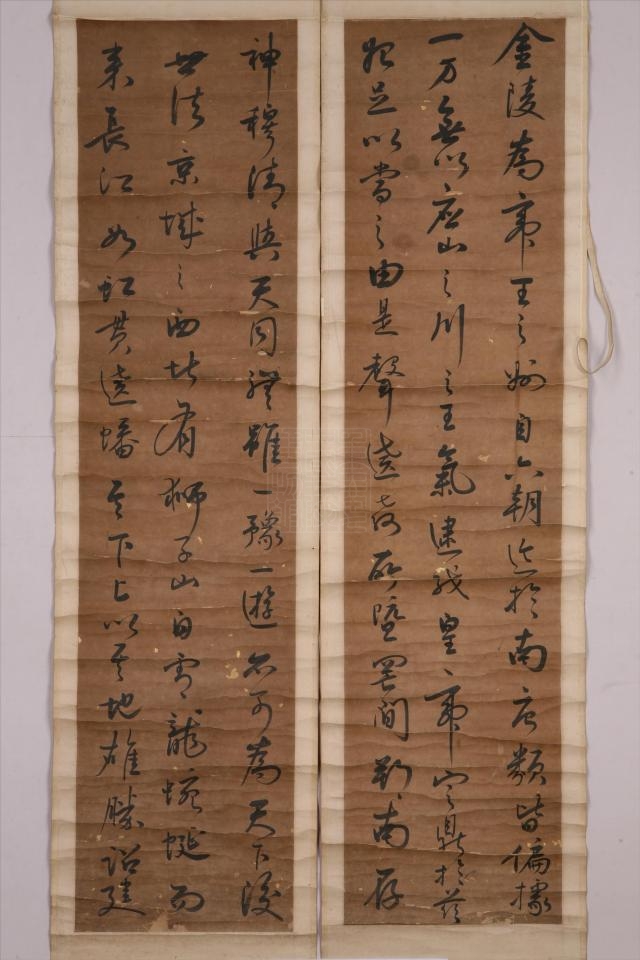 金陵為帝王之州自六朝迄於南唐類皆偏據
一方無以應山之川之王氣逮我皇帝定鼎於茲
始足以當之由是聲教所暨罔間朔南存
神穆清與天同體雖一豫一遊亦可為天下後
世法京城之西北有獅子山自盧龍蜿蜒而
來長江如虹貫遶蟠其下上以其地雄勝詔建